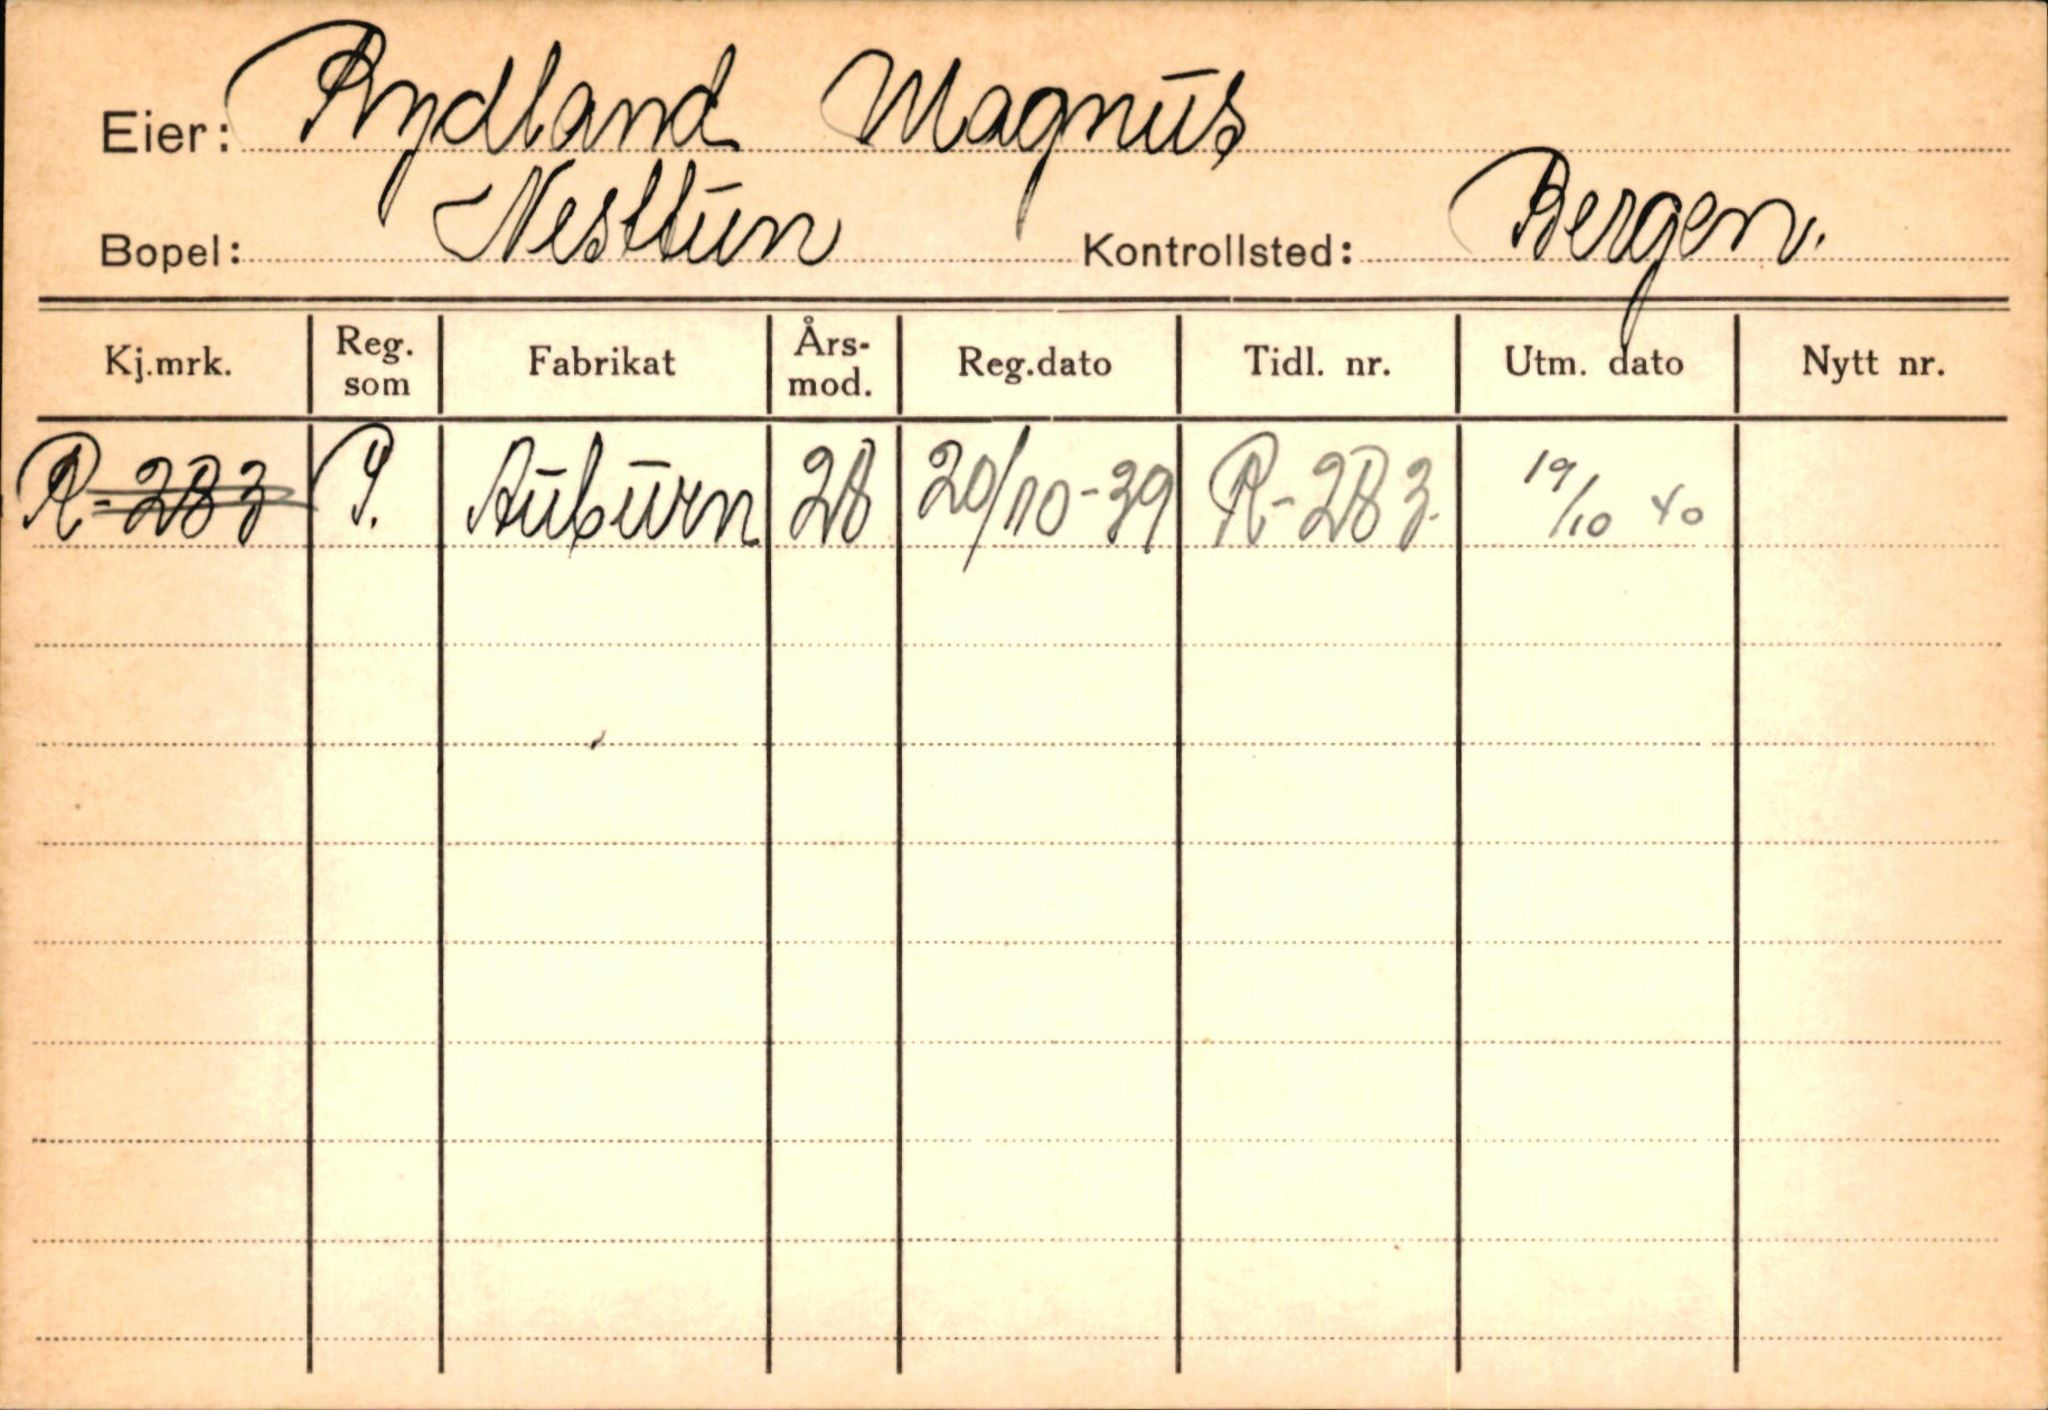 Eier: Rydland Magnus
Bopel: Nesttun Kontrollsted: Bergen.
Kj.mrk. Reg. som Fabrikat Års-mod. Reg.dato Tidl. nr. Utm. dato Nytt nr.
R-283 P. Auburn 28 20/10-39 R-283. 19/10 40